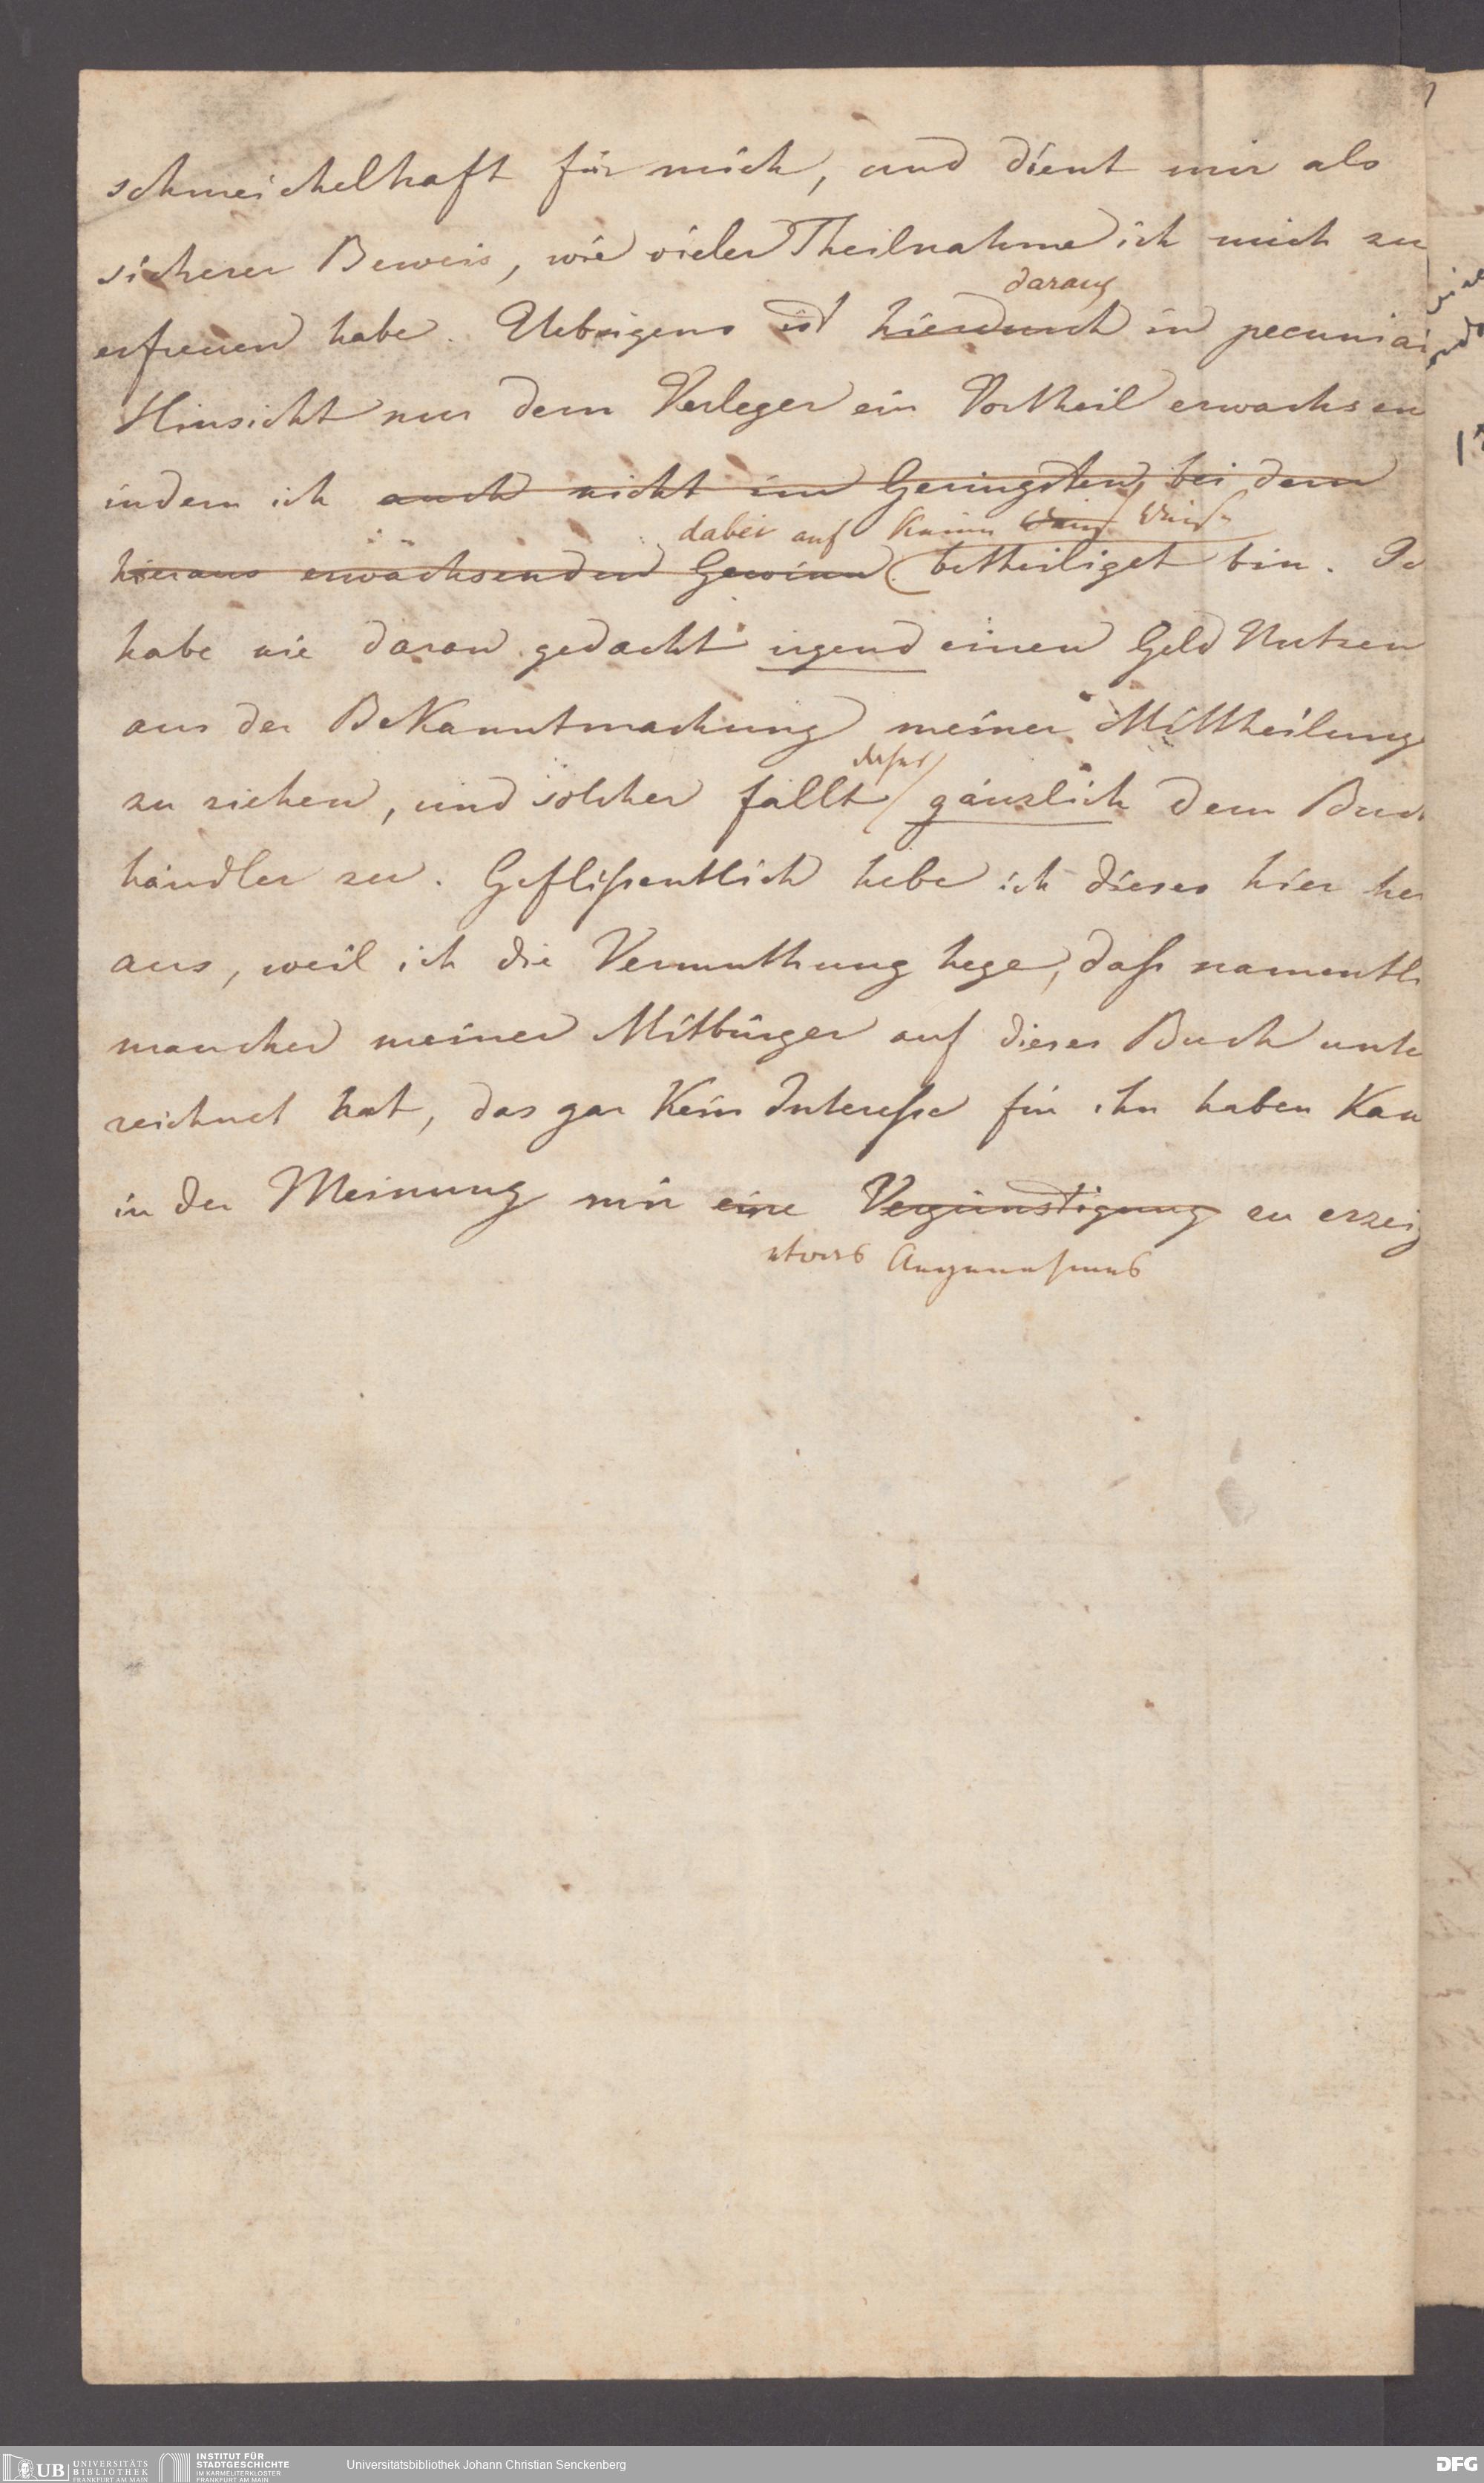 schmeichelhaft für mich, und dient mir als
sicherer Beweis, wie vieler Theilnahme ich mich zu
daraus
erfreuen habe. Uebrigens ist hierdurch in pecuniai
Hinsicht nur dem Verleger ein Vortheil erwachsen
indem ich auch nicht im Geringsten, bei dem
dabei auf keine Weise Weise
hieraus erwachsenden Gewinn betheiliget bin. Ic
habe nie daran gedacht irgend einen Geld Nutzen
aus der BeKanntmachung meiner Mittheilung
daher
zu ziehen, und solcher fällt gänzlich dem Buch
händler zu. Geflißentlich hebe ich dieses hier her
aus, weil ich die Vermuthung hege, daß namentli
mancher meiner Mitbürger auf dieses Buch unte
zeichnet hat, das gar Kein Intereße für ihn haben Kan
in der Meinung mir eine Vergünstigung zu erzeig
etwas Angenehmes
UB UNIVERSITÄTS BIBLIOTHEK FRANKFURT AM MAIN
INSTITUT FÜR STADTGESCHICHTE IM KARMELITERKLOSTER FRANKFURT AM MAIN
Universitätsbibliothek Johann Christian Senckenberg
DFG